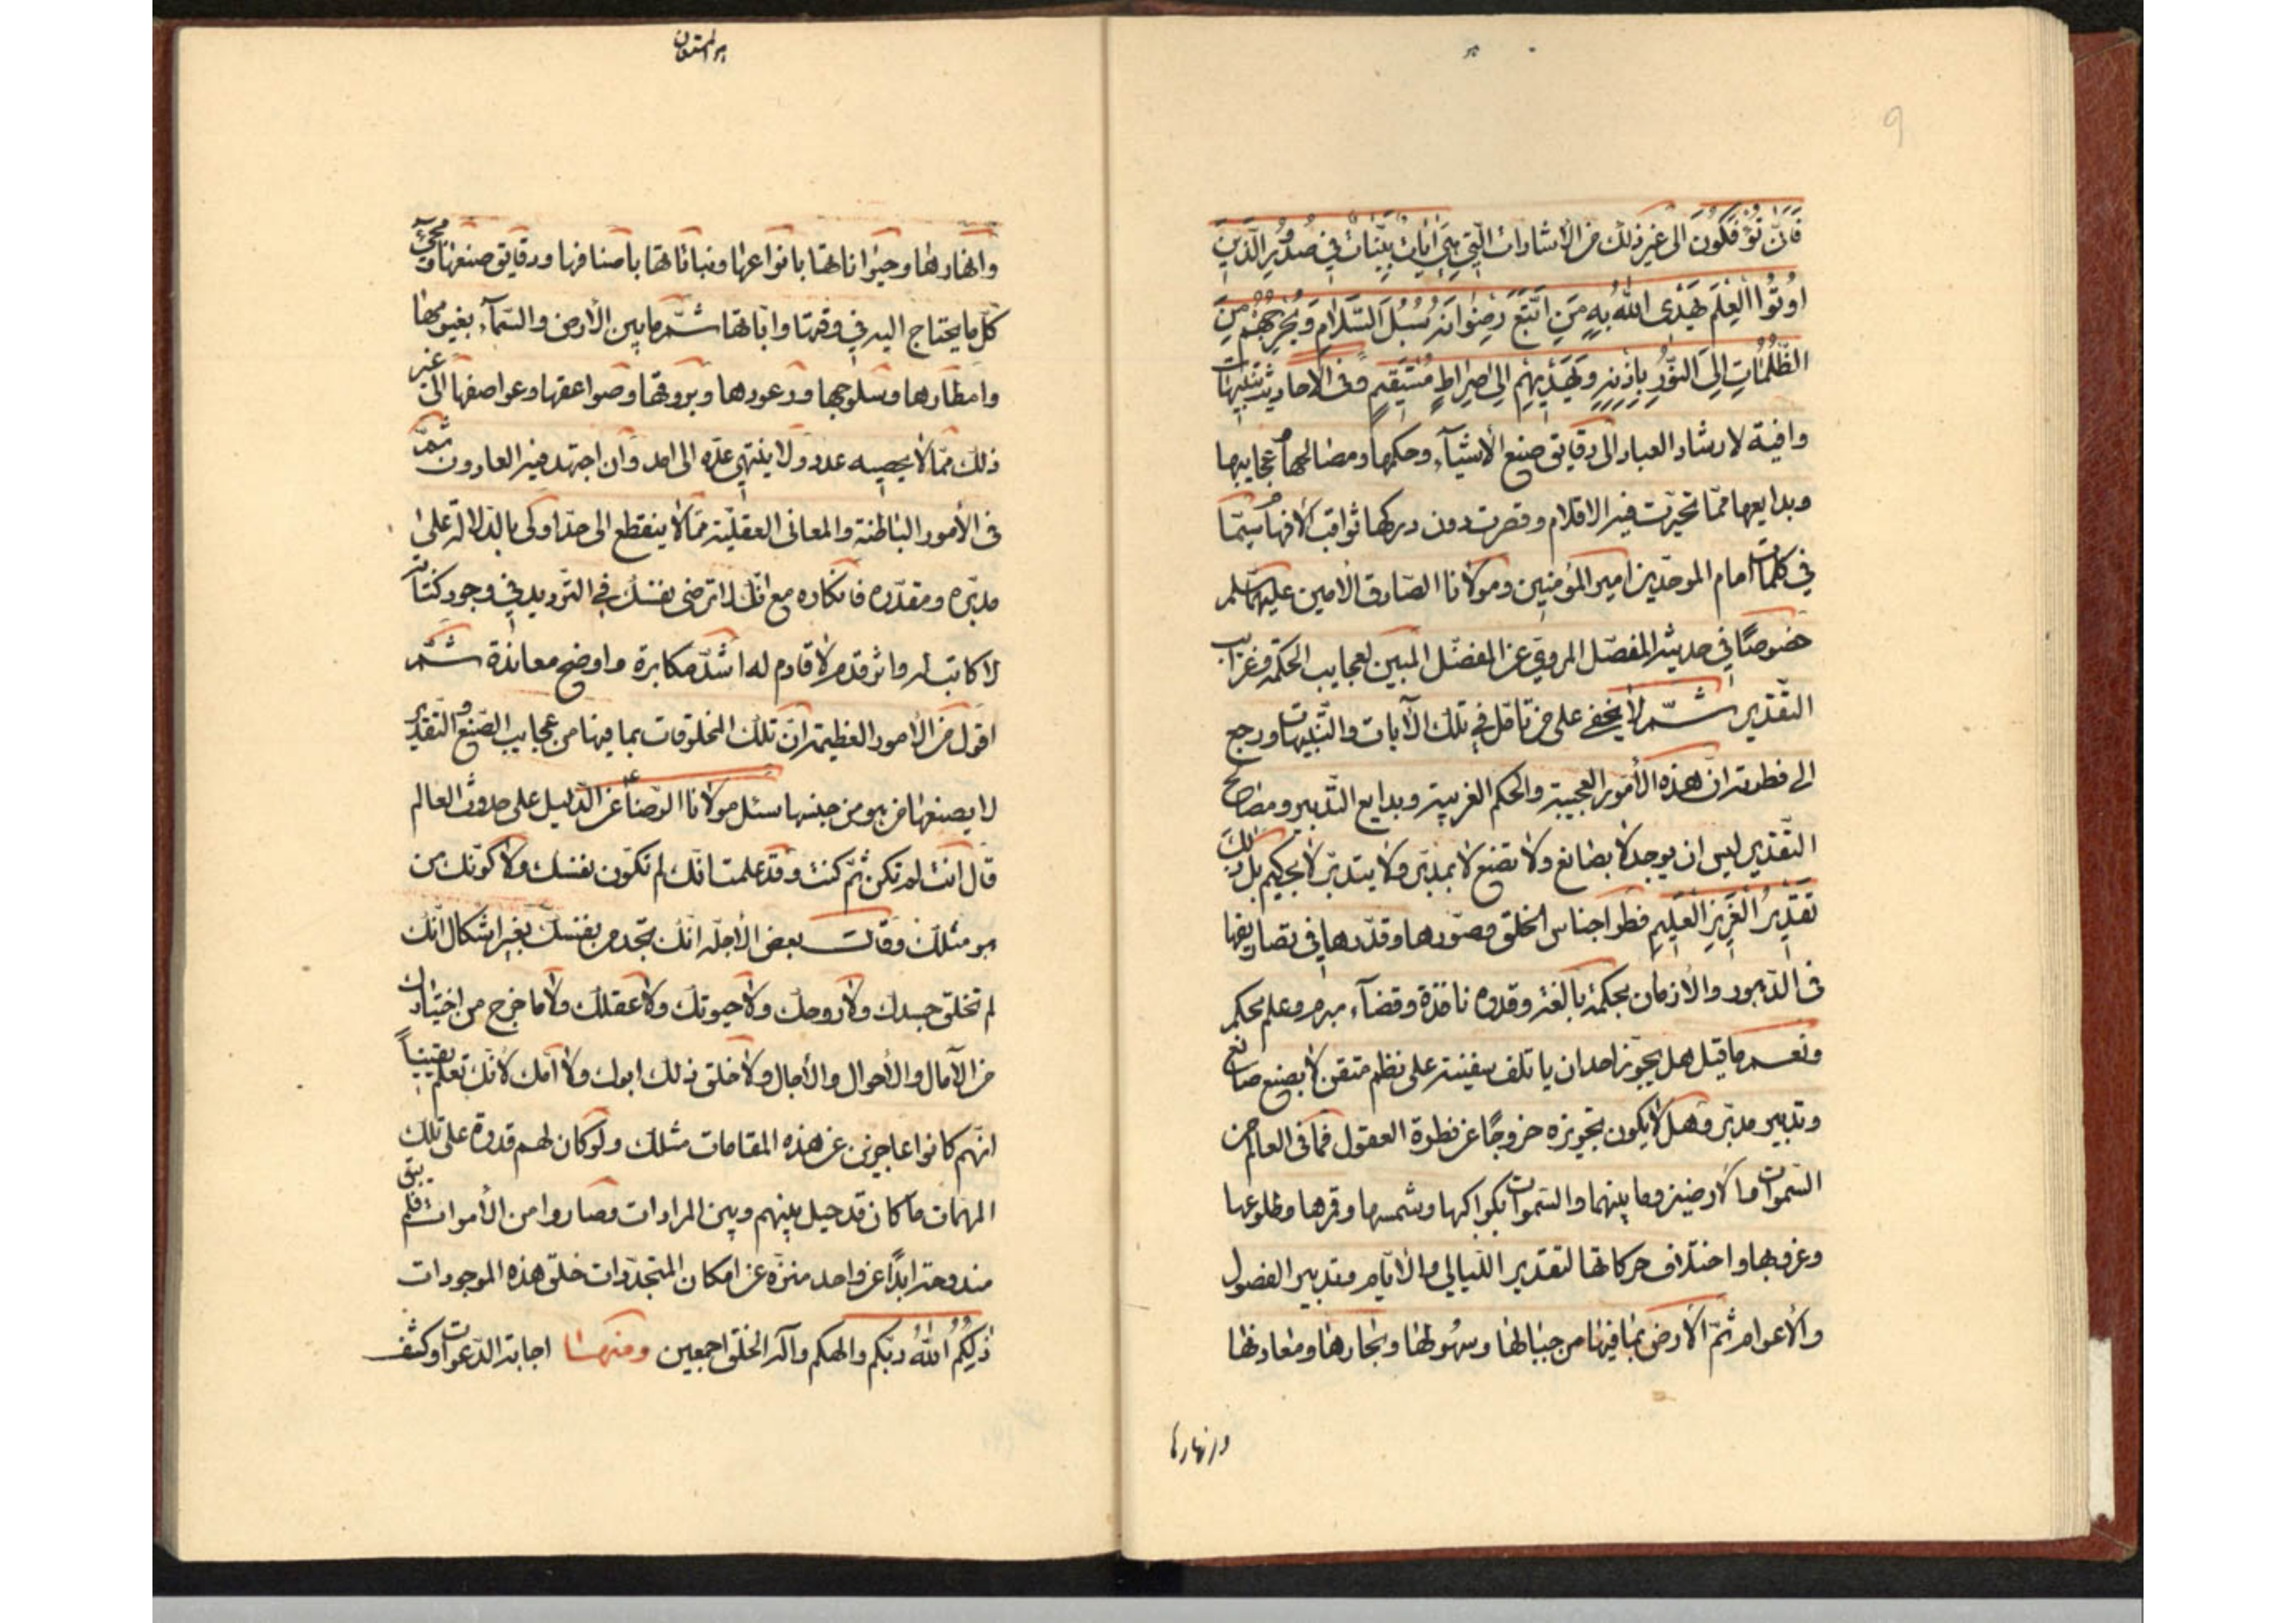 فَاَنّٰى تُؤْفَكُونَ الى غير ذلك من الأشارات الّتي هِىَ اٰيٰاتٌ بَيِّنٰاتٌ فِي صُدُورِ الَّذِينَ
اُوتُوا الْعِلْمَ يَهْدِى اللّٰهُ بِهِ مَنِ اتَّبَعَ رِضْوٰانَهُ سُبُلَ السَّلٰامِ وَيُخْرِجُهُمْ مِنَ
الظُّلُمٰاتِ اِلَى النُّورِ بِاِذْنِهِ وَيَهْدِيهِمْ اِلىٰ صِرٰاطٍ مُسْتَقِيمٍ وفى الأحاديث تنبيهات
وافية لارشاد العباد الى دقايق صنع الأشيآء وحكمها ومصالحها وعجايبها
وبدايعها ممّا تحيّرت فيه الاقلام وقصرت دون دركها ثواقب الأفهام سيّما
في كلمات امام الموحّدين امير المؤمنين ومولانا الصّادق الأمين عليهما السّلم
خصوصًا في حديثه المفصّل المروي عن المفضّل المبين لعجايب الحكمة وغرايب
التّقدير ثمّ لا يخفى على من تامّل في تلك الآيات والتّنبيهات ورجع
الى فطرته انّ هذه الأمور العجيبة والحكم الغريبة وبدايع التّدبير ومصالح
التّقدير ليس ان يوجد لا بصانع ولا تصنع لا بمدبّر ولا يتدبّر لا بحكيم بل ذٰلِكَ
تَقْدِيرُ الْعَزِيزِ الْعَلِيمِ فطر اجناس الخلق وصوّرها وقدّرها في تصاريفها
فى الدّهور والأزمان بحكمة بالغة وقدرة نافذة وقضآء مبرم وعلم محكم
ونعم ما قيل هل يجوّز احد ان ياتلف سفينة على نظم متقن لا بصنع صانع
وتدبير مدبّر وهل لا يكون تجويزه خروجًا عن فطرة العقول فما فى العالم من
السّموات والأرضين وما بينهما والسّموات بكواكبها وشمسها وقمرها وطلوعها
وغروبها واختلاف حركاتها لتقدير اللّيالي والأيّام وتدبير الفصول
والأعوام ثمّ الأرض بما فيها من جبالها وسهولها وبحارها ومعادنها
وانهارها
وانهارها وحيواناتها بانواعها ونباتاتها باصنافها ودقايق صنعها ومجئ
كلّ ما يحتاج اليه في وقتها وابّانها ثمّ ما بين الأرض والسّمآء بغيومها
وامطارها وثلوجها ورعودها وبروقها وصواعقها وعواصفها الى غير
ذلك ممّا لا يحصيه عدد ولا ينتهي عدّه الى امد وان اجتهد فيه العادون ثمّ
فى الأمور الباطنة والمعانى العقليّة ممّا لا ينقطع الى حدّ اولى بالدّلالة على
مدبّره ومقدّره فانكاره مع انّك لا ترضى نفسك في التّرديد في وجود كتابة
لا كاتب له واثر قدم لا قادم له اشدّ مكابرة واوضح معاندة ثمّ
اقول من الأمور العظيمة انّ تلك المخلوقات بما فيها من عجايب الصّنع والتّقدير
لا يصنعها من هو من جنسها سئل مولانا الرّضا ع عن الدّليل على حدوث العالم
قال انت لم تكن ثمّ كنت وقد علمت انّك لم تكوّن نفسك ولا كوّنك من
هو مثلك وقالت بعض الأجلّه انّك تجد من نفسك بغير اشكال انّك
لم تخلق جسدك ولا روحك ولا حيوتك ولا عقلك ولا ما خرج من اختيارك
من الآمال والأحوال والأجال ولا خلق ذلك ابوك ولا امّك لأنّك تعلم يقينًا
انّهم كانوا عاجزين عن هذه المقامات مثلك ولو كان لهم قدرة على تلك
المهمات ما كان قد حيل بينهم وبين المرادات وصاروا من الأموات فلم يبق
مندوحة ابدًا عن واحد منزّه عن امكان المتجدّدات خلق هذه الموجودات
ذٰلِكُمُ اللّٰهُ ربّكم والهكم واله الخلق اجمعين ومنها اجابة الدّعوات وكشف